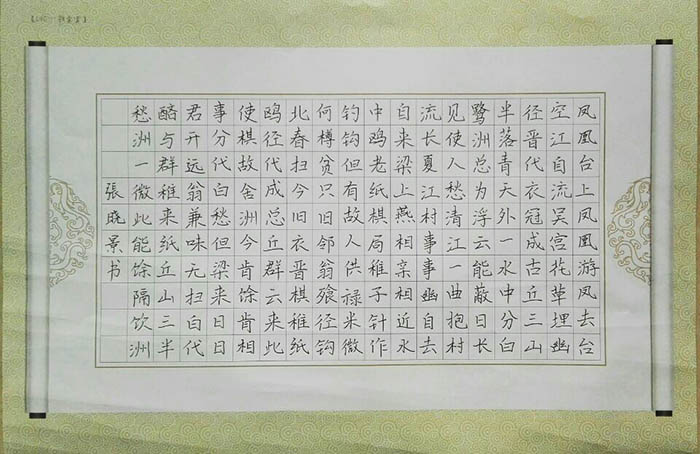 凤凰台上凤凰游凤去台
空江自流吴宫花草埋幽
径晋代衣冠成古丘三山
半落青天外一水中分白
鹭洲总为浮云能蔽日长
见使人愁清江一曲抱村
流长夏江村事事幽自去
自来梁上燕相亲相近水
中鸥老纸棋局稚子针作
钓钩但有故人供禄米微
何樽贫只旧邻翁飧径钩
北春扫今旧衣晋棋稚纸
鸥径代成总丘群云来此
使棋故舍洲今肯馀肯相
事分代白愁但梁来日日
君开远翁兼味无扫白代
醅与群稚来纸丘山三半
愁洲一微此能馀隔饮洲
張晓景书